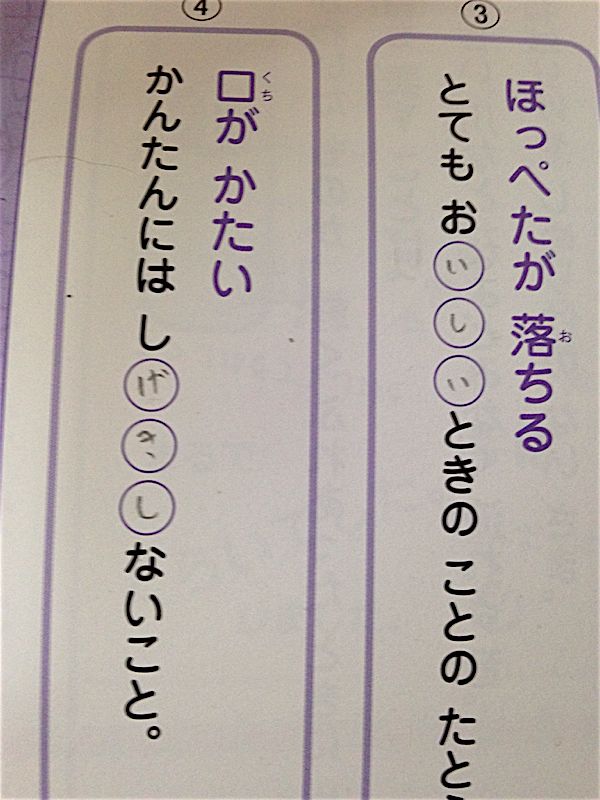 ③
ほっぺたが 落ちる
お
とても おいしいときの ことの たと
④
口が かたい
くち
かんたんには しげきしないこと。